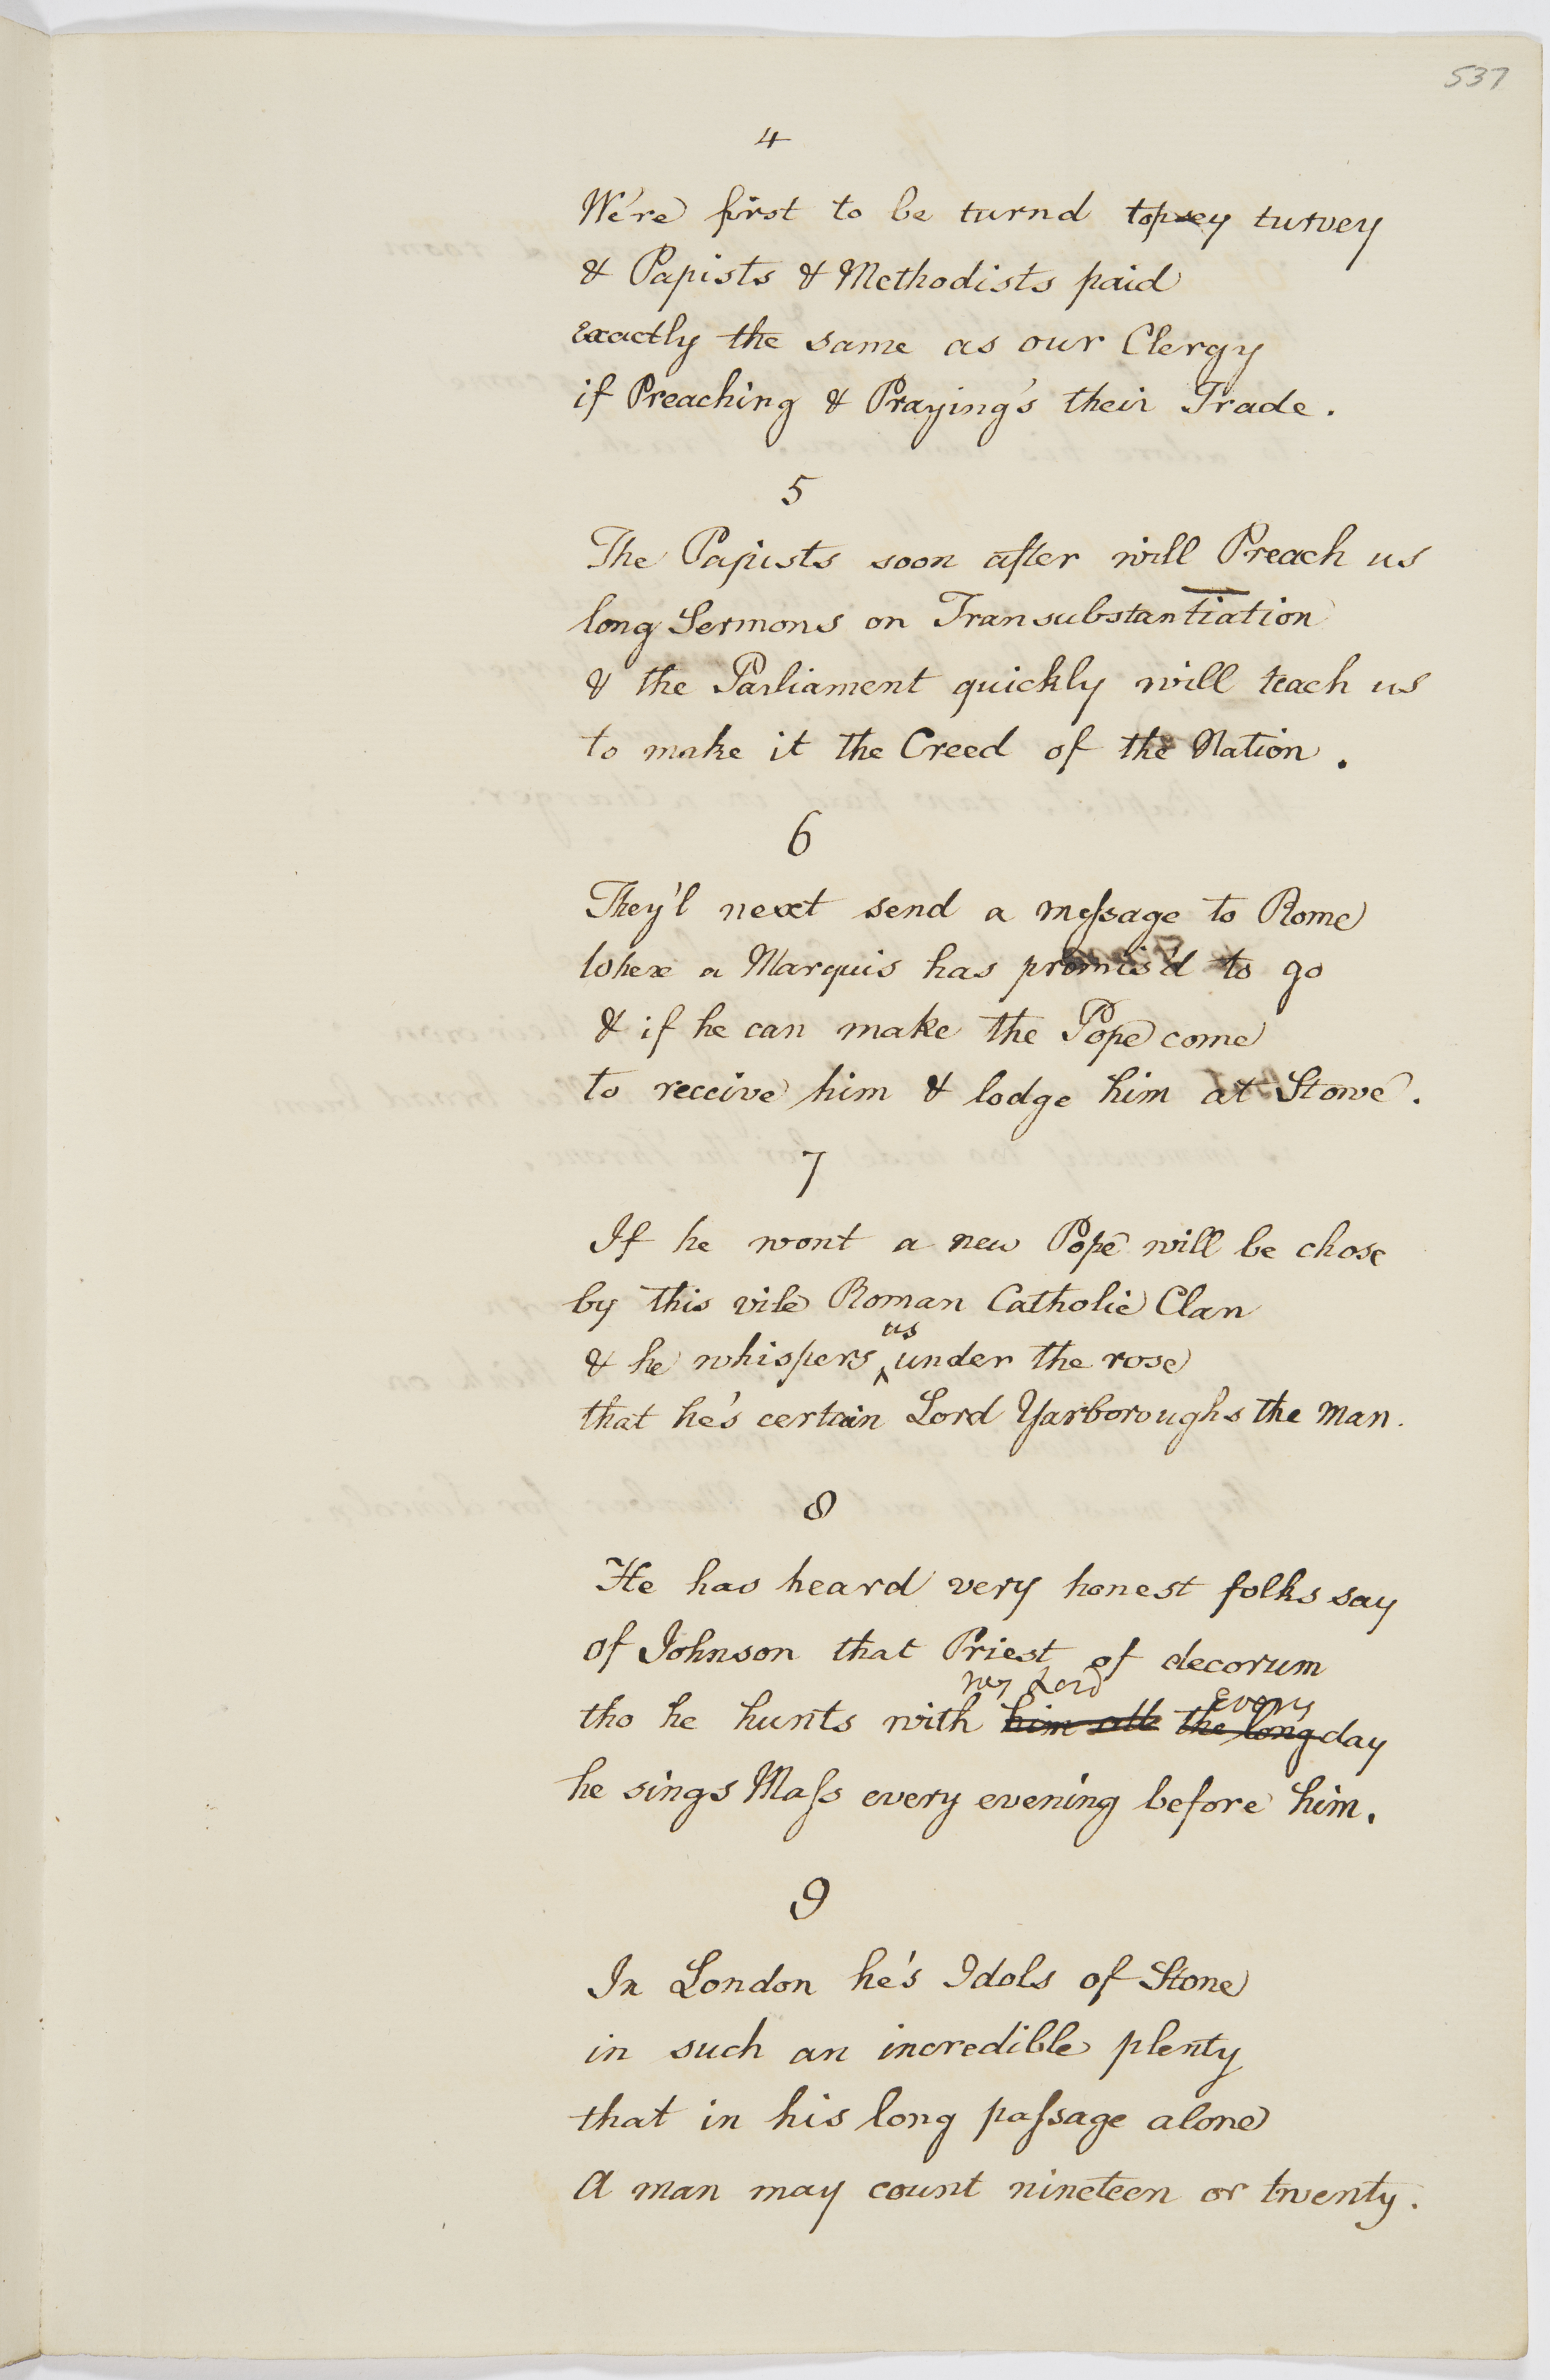 537
4
We're first to be turnd topsey turvey
& Papists & Methodists paid
Exactly the same as our Clergy
if Preaching & Praying's their Trade.
5
The Papists soon after will Preach us
long Sermons on Transubstantiation
& the Parliament quickly will teach us
to make it the Creed of the Nation.
6
They'l next send a meſsage to Rome
where a Marquis has promis'd to go
& if he can make the Pope come
to receive him & lodge him at Stowe.
7
If he wont a new Pope will be chose
by this vile Roman Catholic Clan
us
& he whispers ‸ under the rose
that he's certain Lord Yarboroughs the man.
8
He has heard very honest folks say
of Johnson that Priest of decorum
my Lord Every
tho he hunts with him all the long day
he sings Maſs every evening before him.
9
In London he's Idols of Stone
in such an incredible plenty
that in his long paſsage alone
A man may count nineteen or twenty.